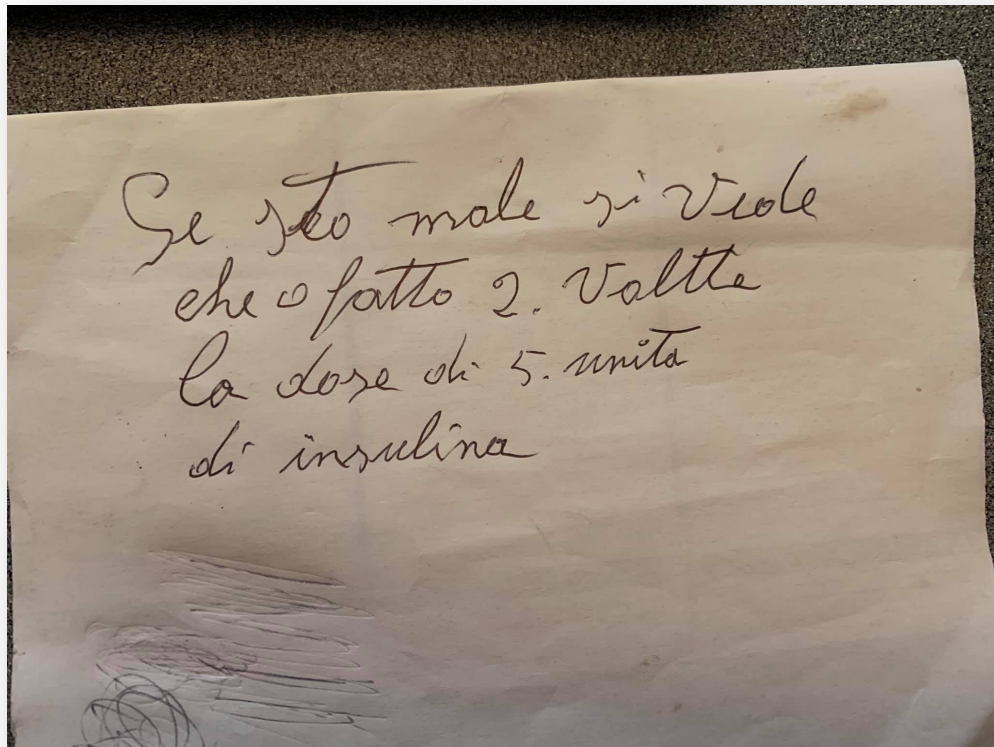 Se sto male si vede
che o fatto 2. Voltte
la dose di 5. unita
di insulina